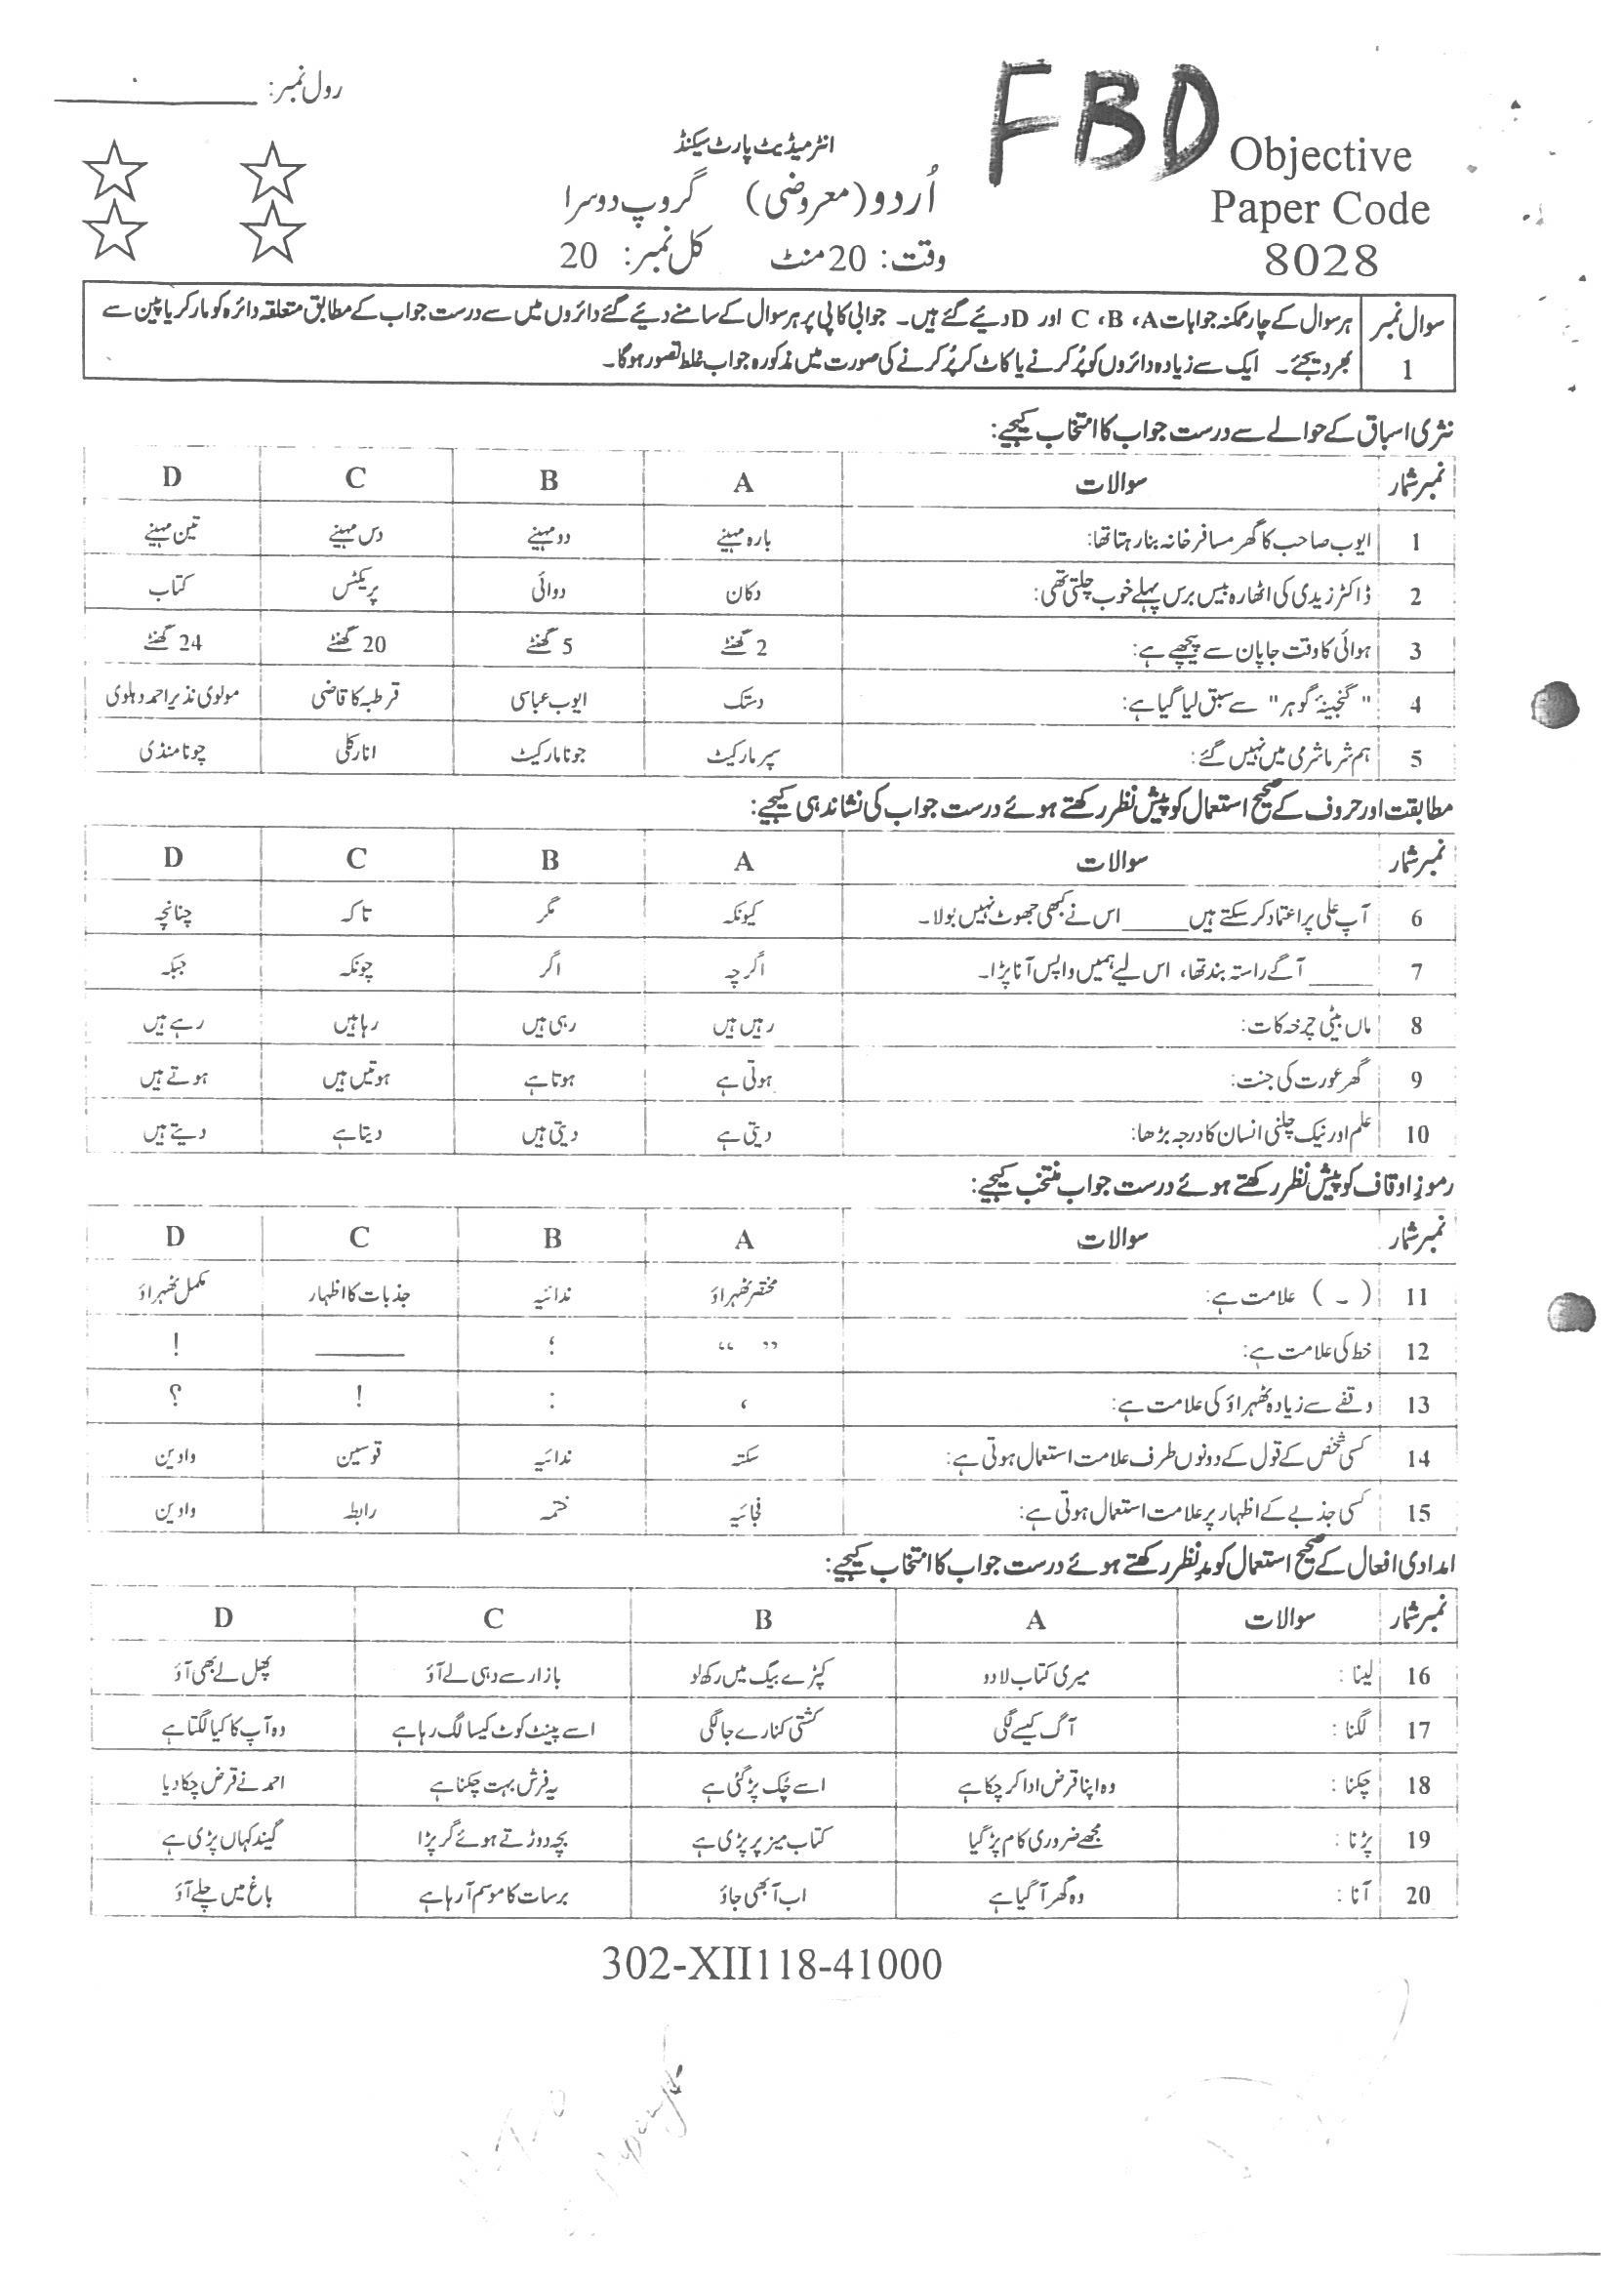 رول نمبر: ____________
FBD
Objective
Paper Code
8028
انٹرمیڈیٹ پارٹ سیکنڈ
اُردو (معروضی) گروپ دوسرا
وقت: 20 منٹ کل نمبر: 20
سوال نمبر 1
ہر سوال کے چار ممکنہ جوابات A، B، C اور D دیئے گئے ہیں۔ جوابی کاپی پر ہر سوال کے سامنے دیئے گئے دائروں میں سے درست جواب کے مطابق متعلقہ دائرہ کو مارکر یا پین سے
بھر دیجئے۔ ایک سے زیادہ دائروں کو پُر کرنے یا کاٹ کر پُر کرنے کی صورت میں مذکورہ جواب غلط تصور ہوگا۔
نثری اسباق کے حوالے سے درست جواب کا انتخاب کیجیے:
نمبر شمار سوالات A B C D
1 ایوب صاحب کا گھر مسافر خانہ بنا رہتا تھا: بارہ مہینے دو مہینے دس مہینے تین مہینے
2 ڈاکٹر زیدی کی اٹھارہ بیس برس پہلے خوب چلتی تھی: دکان دوائی پریکٹس کتاب
3 ہوائی کا وقت جاپان سے پیچھے ہے: 2 گھنٹے 5 گھنٹے 20 گھنٹے 24 گھنٹے
4 "گنجینۂ گوہر" سے سبق لیا گیا ہے: دستک ایوب عباسی قرطبہ کا قاضی مولوی نذیر احمد دہلوی
5 ہم شرما شرمی میں نہیں گئے: سپر مارکیٹ جونا مارکیٹ انار کلی چونا منڈی
مطابقت اور حروف کے صحیح استعمال کو پیش نظر رکھتے ہوئے درست جواب کی نشاندہی کیجیے:
نمبر شمار سوالات A B C D
6 آپ علی پر اعتماد کر سکتے ہیں _____ اس نے کبھی جھوٹ نہیں بولا۔ کیونکہ مگر تاکہ چنانچہ
7 _____ آگے راستہ بند تھا، اس لیے ہمیں واپس آنا پڑا۔ اگرچہ اگر چونکہ جبکہ
8 ماں بیٹی چرخہ کات: رہیں ہیں رہی ہیں رہا ہیں رہے ہیں
9 گھر عورت کی جنت: ہوتی ہے ہوتا ہے ہوتیں ہیں ہوتے ہیں
10 علم اور نیک چلنی انسان کا درجہ بڑھا: دیتی ہے دیتی ہیں دیتا ہے دیتے ہیں
رموز اوقاف کو پیش نظر رکھتے ہوئے درست جواب منتخب کیجیے:
نمبر شمار سوالات A B C D
11 ( ۔ ) علامت ہے: مختصر ٹھہراؤ ندائیہ جذبات کا اظہار مکمل ٹھہراؤ
12 خط کی علامت ہے: “ ” ؛ _____ !
13 وقفے سے زیادہ ٹھہراؤ کی علامت ہے: ، : ! ؟
14 کسی شخص کے قول کے دونوں طرف علامت استعمال ہوتی ہے: سکتہ ندائیہ قوسین واوین
15 کسی جذبے کے اظہار پر علامت استعمال ہوتی ہے: فجائیہ ختمہ رابطہ واوین
امدادی افعال کے صحیح استعمال کو مدِ نظر رکھتے ہوئے درست جواب کا انتخاب کیجیے:
نمبر شمار سوالات A B C D
16 لینا : میری کتاب لا دو کپڑے بیگ میں رکھ لو بازار سے دہی لے آؤ پھل لے بھی آؤ
17 لگنا : آگ کیسے لگی کشتی کنارے جا لگی اسے پینٹ کوٹ کیسا لگ رہا ہے وہ آپ کا کیا لگتا ہے
18 چکنا : وہ اپنا قرض ادا کر چکا ہے اسے چُک پڑ گئی ہے یہ فرش بہت چکنا ہے احمد نے قرض چکا دیا
19 پڑنا : مجھے ضروری کام پڑ گیا کتاب میز پر پڑی ہے بچہ دوڑتے ہوئے گر پڑا گیند کہاں پڑی ہے
20 آنا : وہ گھر آ گیا ہے اب آ بھی جاؤ برسات کا موسم آ رہا ہے باغ میں چلے آؤ
302-XII118-41000